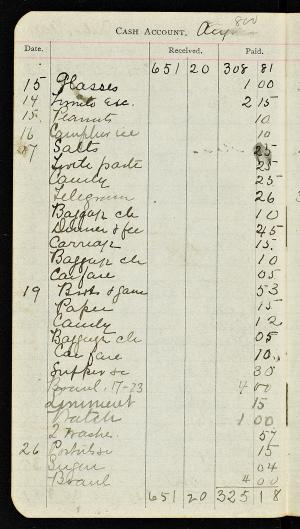 800
CASH ACCOUNT. Aug
Date. Received. Paid.
651 20 308 81
15 Glasses 1 00
14 Limits Etc. 2 15
15 Peanuts 10
16 Camphor ice 10
17 Salts 25
Tooth paste 25
Candy 25
Telegram 26
Baggage ch 10
Dinner & fee 45
Carriage 15
Baggage ch 10
Carfare 05
19 Birds & game 53
Paper 15
Candy 12
Baggage ch 05
Car fare 10
Supper &c 30
Board 17-23 4 00
Liniment 15
Watch 1 00
2 Washes 57
26 15
Sugar 04
Board 4 00
651 20 325 18